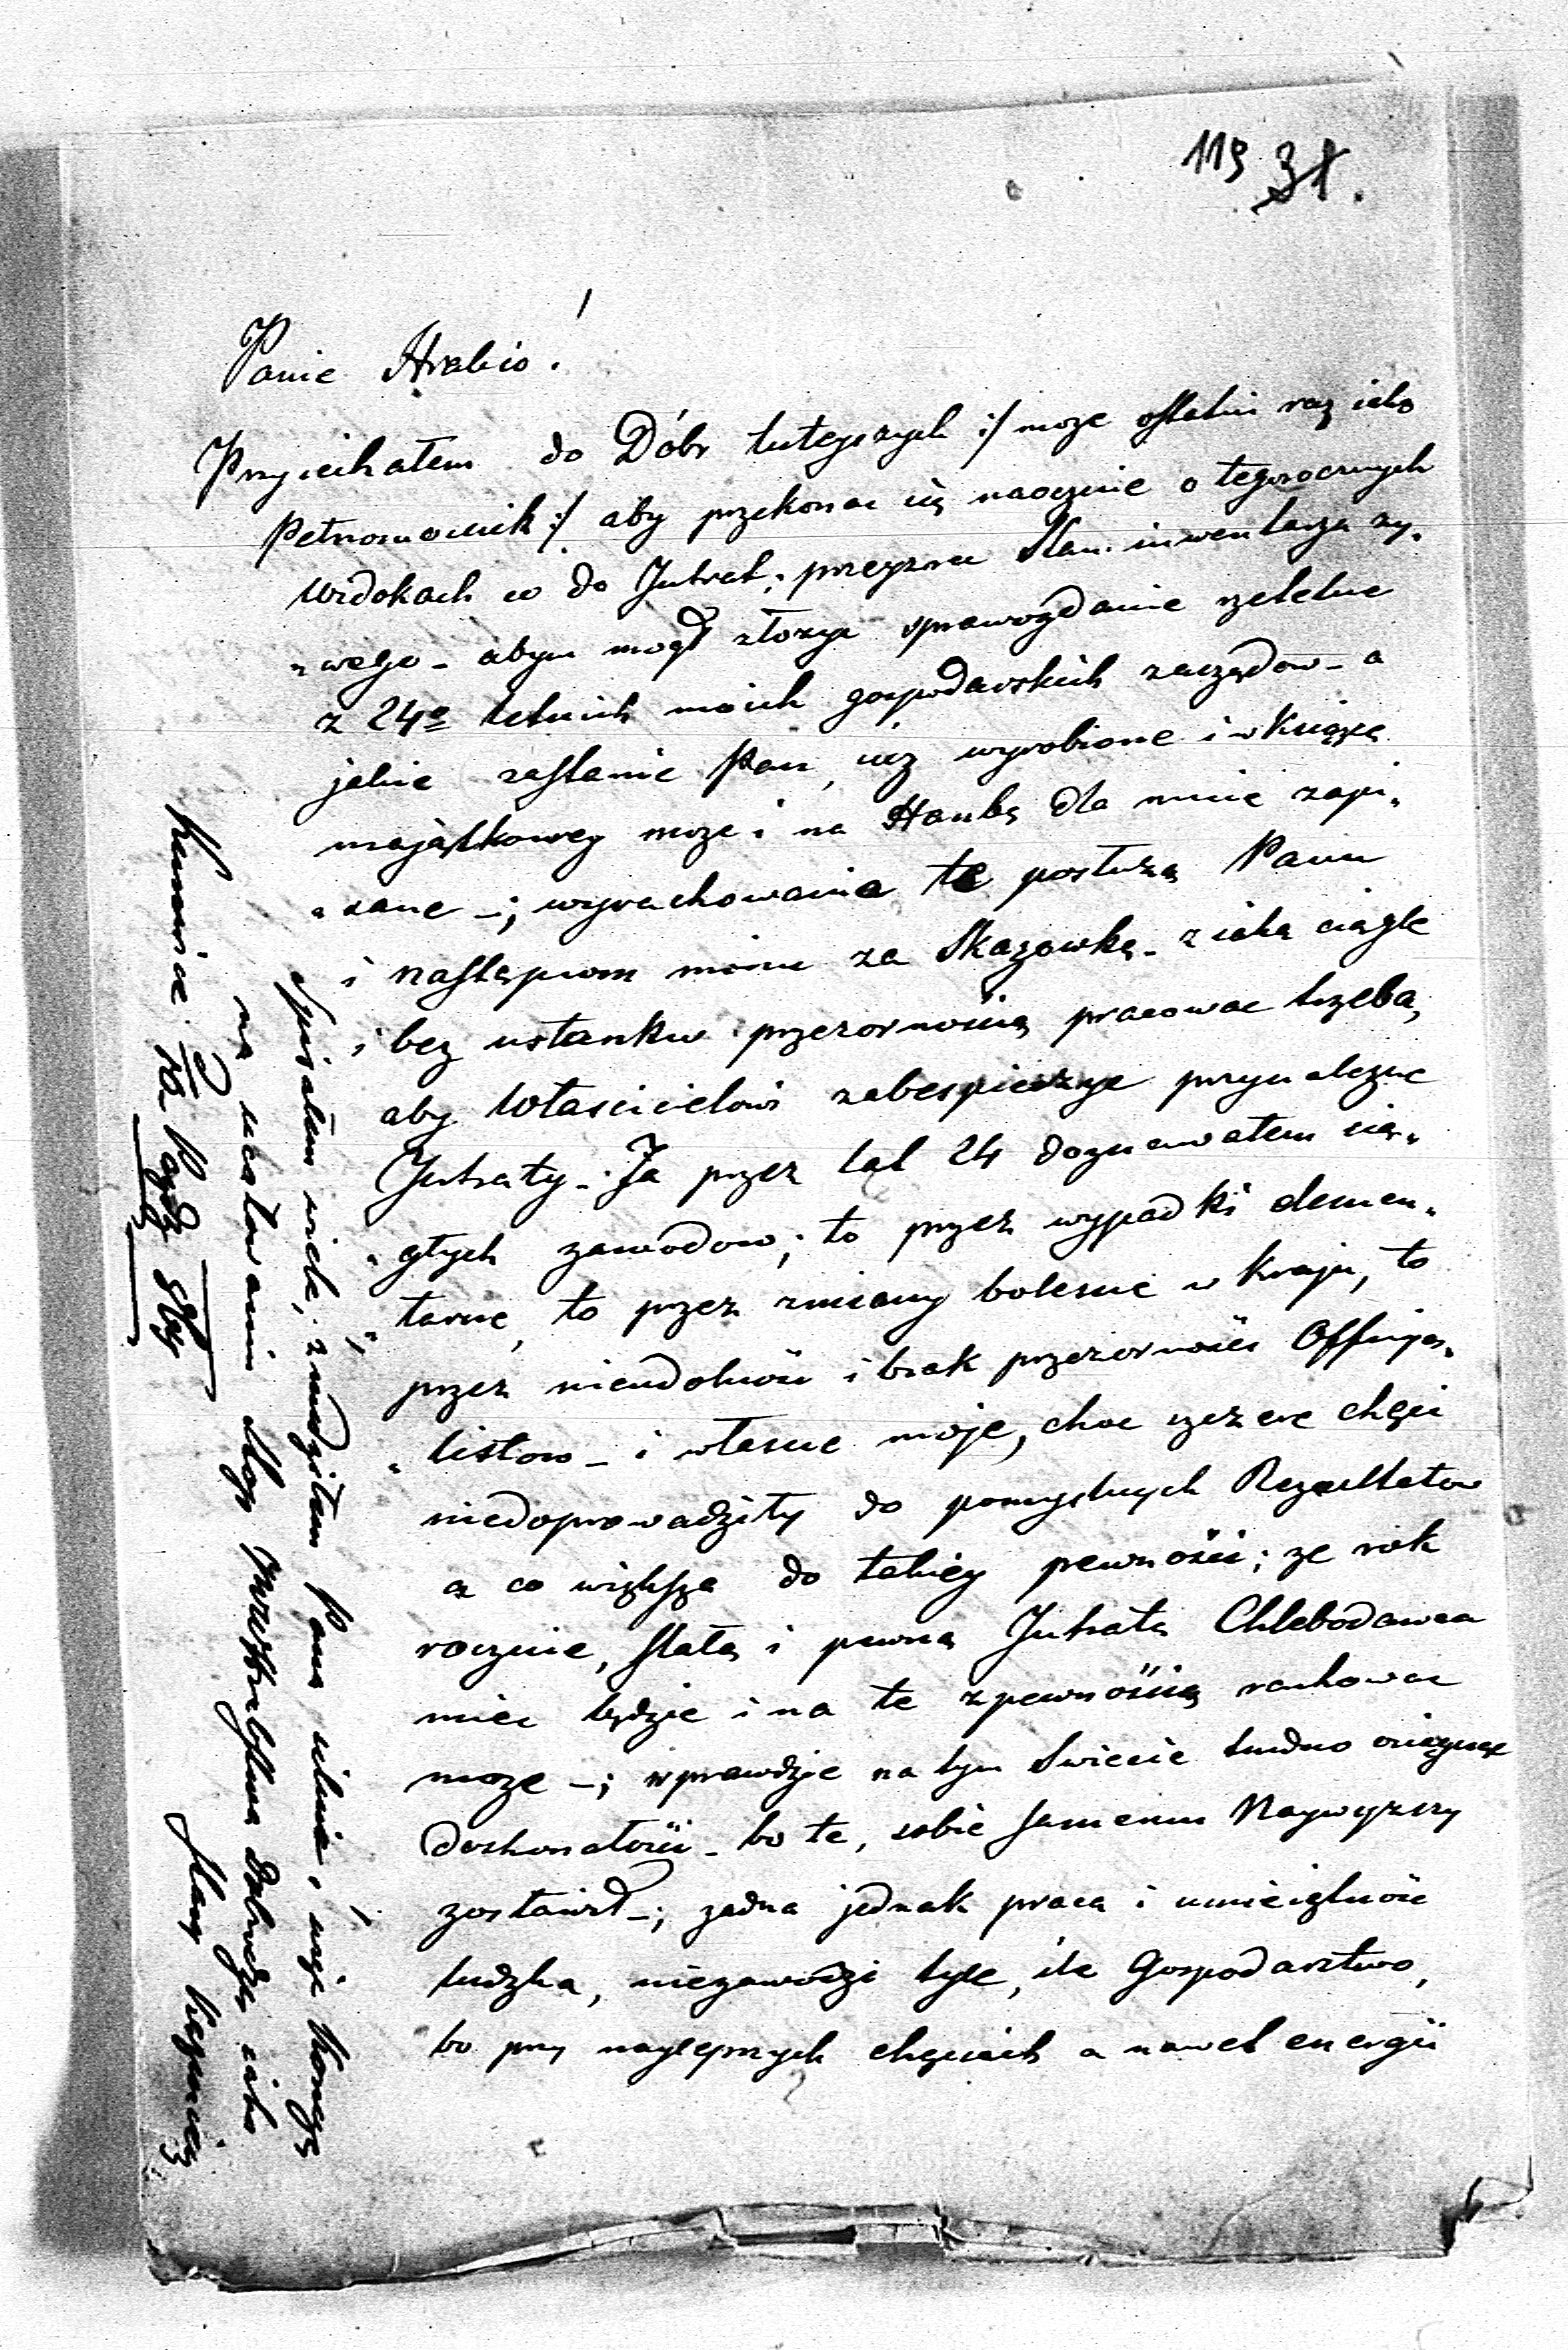 119 31.
Panie Hrabio!
Przyiechałem do Dóbr tuteyszych :/ moze ostatni raz iako
Pełnomocnik :/ aby przekonac się naocznie o tegorocznych
widokach co do Intrat; przeyzrec Stan inwentarza zy„
„wego – abym mogł złozyc sprawozdanie rzetelne
z 24o letnich moich gospodarskich zarządow – a
jakie zastanie Pan, wyrobione i w Książę
majątkowey moze i na Hanbę dla mnie zapi„
„sane –; wyrachowania te posłuzą Panu
i następcom moim za Skazowkę – z iaką ciągle
i bez ustanku przezornoscią pracowac trzeba,
aby Włascicielowi zabespieczyc przynalezne
Intraty – Ja przez lat 24 doznawałem cią„
„głych zawodow; to przez wypadki elemen„
„tarne, to przez zmiany bolesne w kraju, to
przez nieudolność i brak przezorności Officja„
„listow – i własne moje, choc szczere chęci
niedoprowadziły do pomyslnych Rezultatow
a co większa do takiey pewności; ze rok
rocznie, stałą i pewną Intratę Chlebodawca
miec będzie i na te z pewnością rachowac
moze –; wprawdzie na tym Swiecie trudno osiągnąc
doskonałości – bo te, sobie samemu Naywyzszy
zostawił –; zadna jednak praca i umieiętność
ludzka, niezawodzi tyle, ile Gospodarstwo,
bo przy naylepszych chęciach a nawet energii
Spisałem wiele, znudziłem Pana silnie, więc konczę
na ucałowaniu Nóg Dobrodzieja iako
Sługa